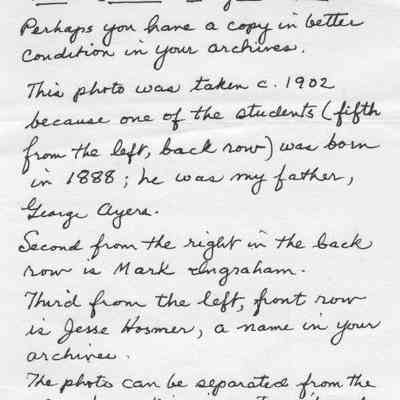 Perhaps you have a copy in better
condition in your archives.
This photo was taken c. 1902
because one of the students (fifth
from the left, back row) was born
in 1888; he was my father,
George Ayers.
Second from the right in the back
row is Mark Ingraham.
Third from the left, front row
is Jesse Hosmer, a name in your
archives.
The photo can be separated from the